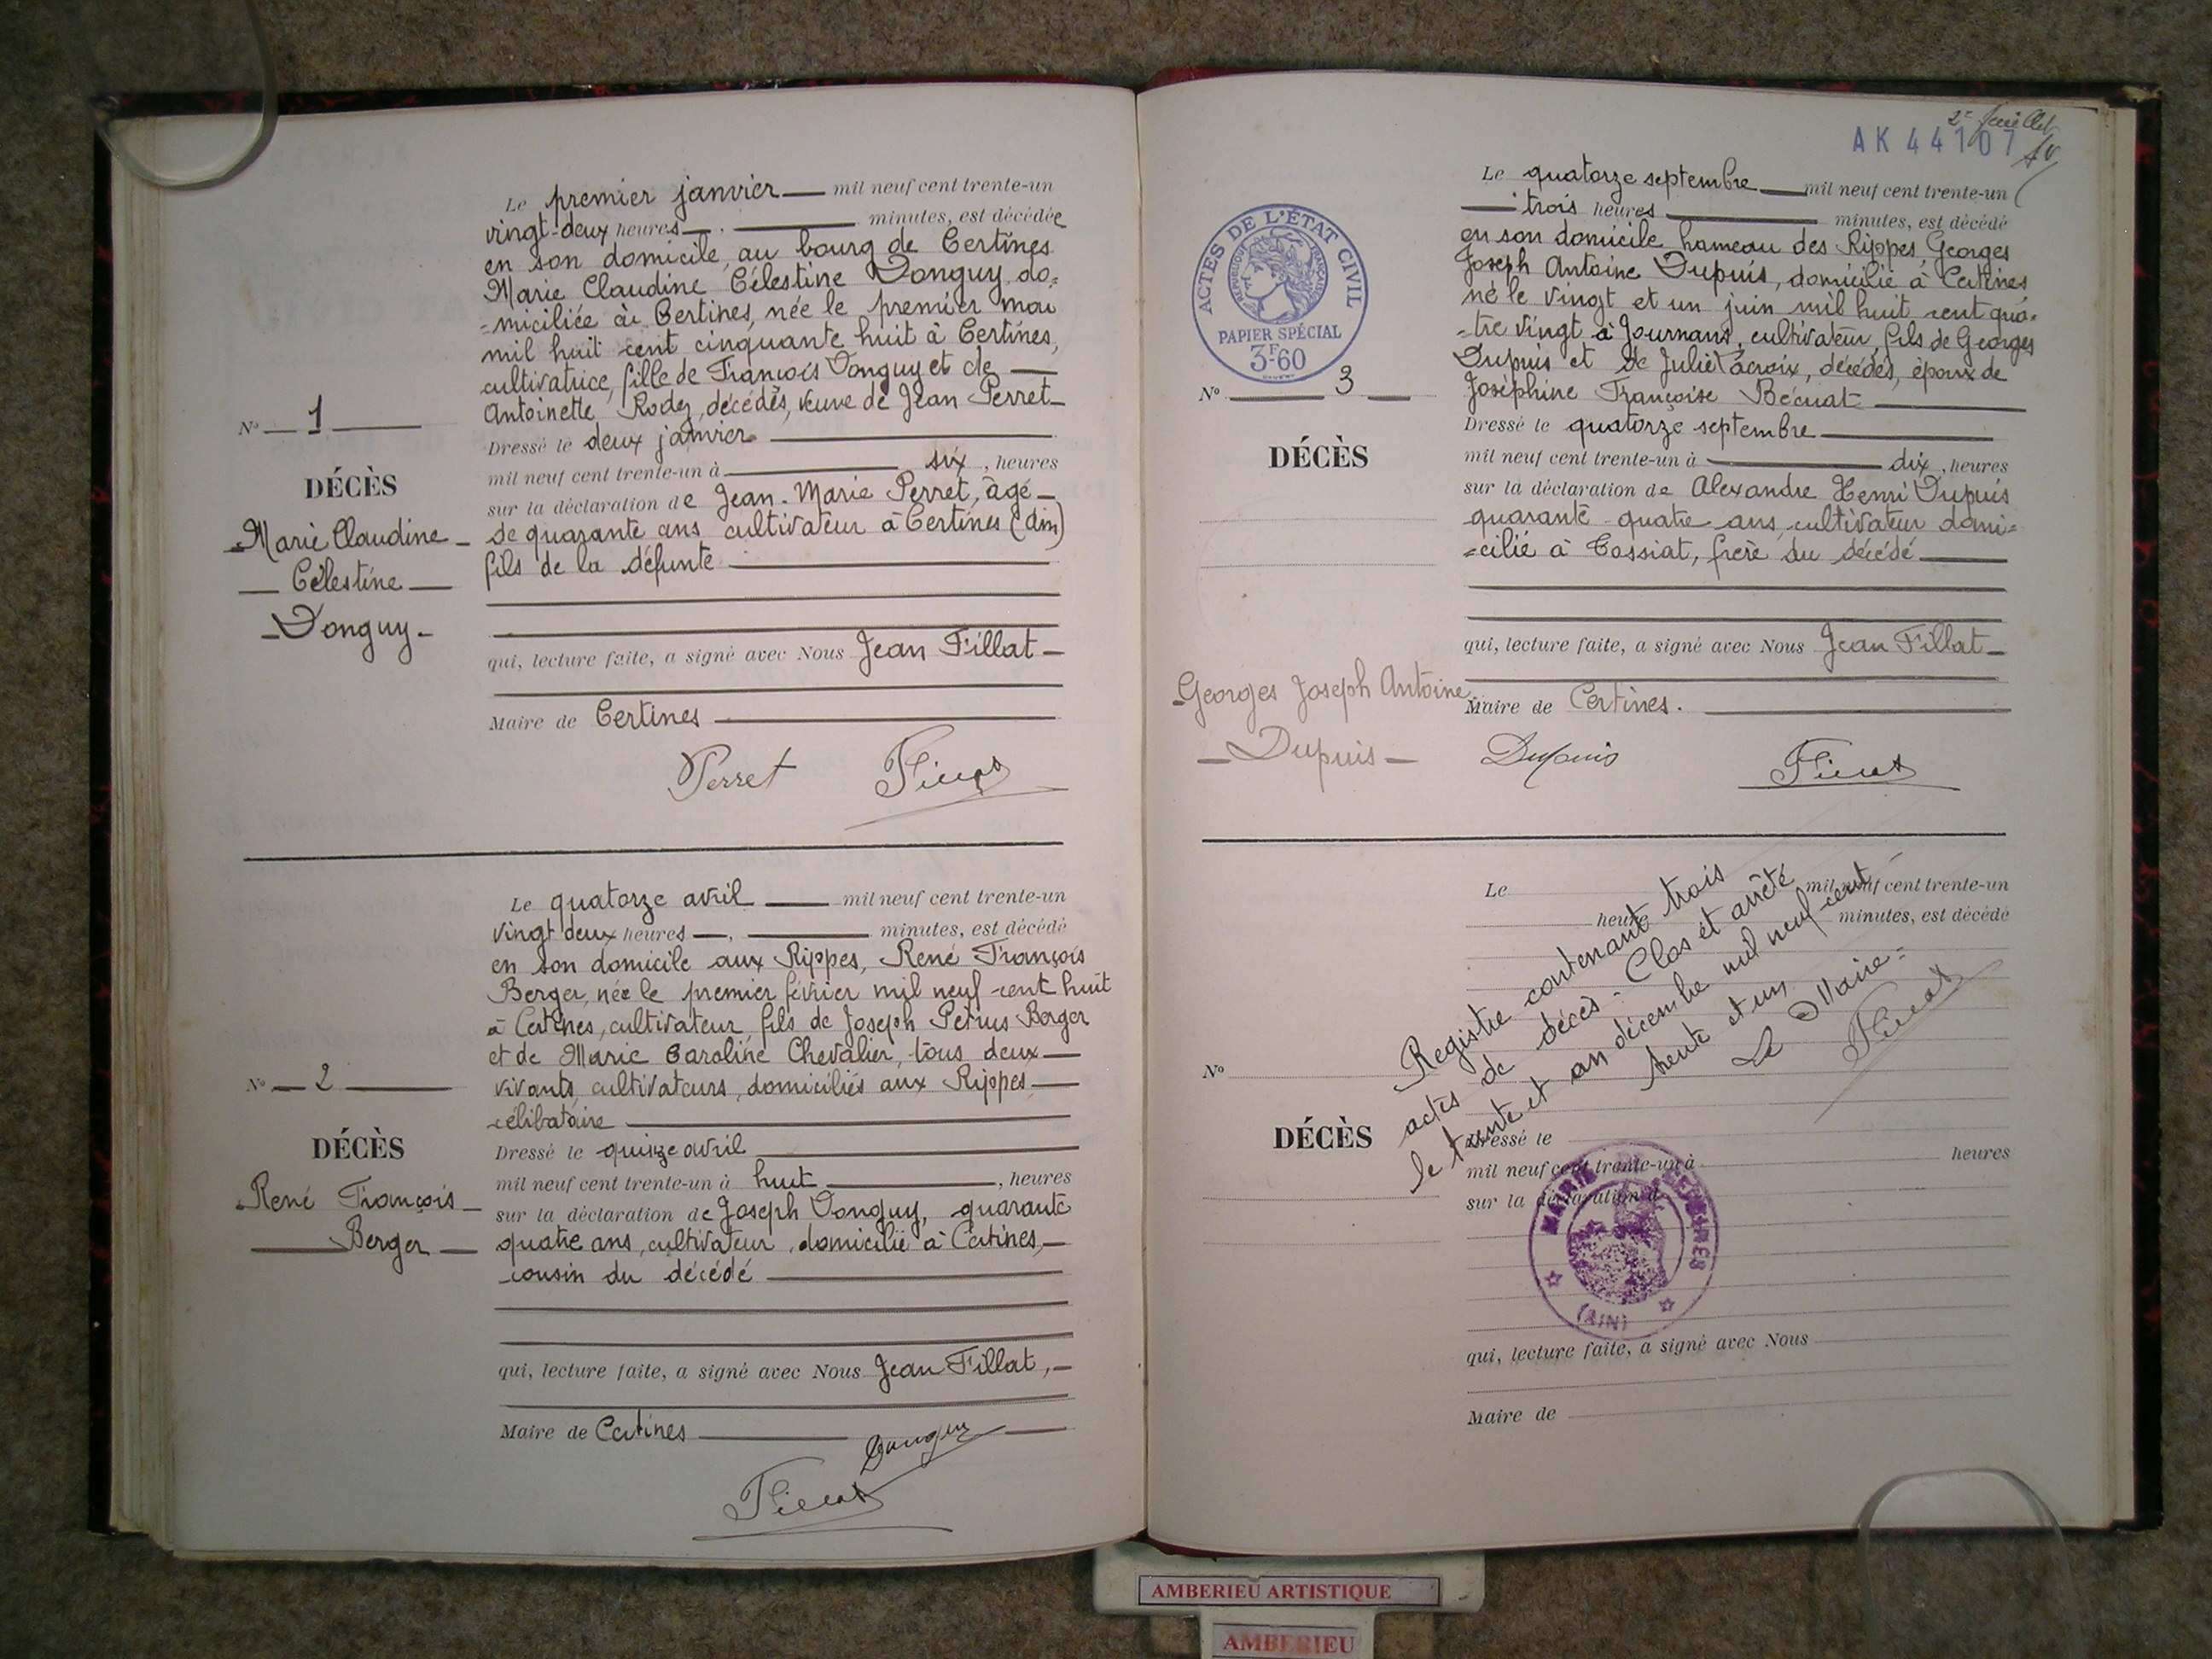 Le premier janvier mil neuf cent trente-un
vingt-deux heures minutes, est décédée
en son domicile au bourg de Certines
Marie Claudine Célestine Donguy do-
-miciliée à Certines, née le premier mai
mil huit cent cinquante huit à Certines,
cultivatrice, fille de François Donguy et de
Antoinette Rodez, décédés, veuve de Jean Perret
N° 1
DÉCÈS
Marie Claudine
Célestine
Donguy
Dressé le deux janvier
mil neuf cent trente-un à six, heures
sur la déclaration de Jean-Marie Perret, âgé
de quarante ans cultivateur à Certines (Ain)
fils de la défunte
qui, lecture faite, a signé avec Nous Jean Fillat
Maire de Certines
Perret Fillat
Le quatorze avril mil neuf cent trente-un
vingt deux heures, minutes, est décédé
en son domicile aux Rippes, René François
Berger, née le premier février mil neuf cent huit
à Certines, cultivateur, fils de Joseph Petrus Berger
et de Marie Caroline Chevalier, tous deux
vivants, cultivateurs, domiciliés aux Rippes
célibataire
N° 2
DÉCÈS
René François
Berger
Dressé le quinze avril
mil neuf cent trente-un à huit, heures
sur la déclaration de Joseph Donguy, quarante
quatre ans, cultivateur, domicilié à Certines,
cousin du décédé
qui, lecture faite, a signé avec Nous Jean Fillat,
Maire de Certines
Donguy
Fillat
2e feuillet
AK 44107
ACTES DE L'ÉTAT CIVIL
RÉPUBLIQUE FRANÇAISE
PAPIER SPÉCIAL
3F60
Le quatorze septembre mil neuf cent trente-un
trois heures minutes, est décédé
en son domicile hameau des Rippes, Georges
Joseph Antoine Dupuis, domicilié à Certines
né le vingt et un juin mil huit cent qua-
-tre vingt à Journans, cultivateur, fils de Georges
Dupuis et de Julie Lacroix, décédés, époux de
Joséphine Françoise Bécuat
N° 3
DÉCÈS
Georges Joseph Antoine
Dupuis
Dressé le quatorze septembre
mil neuf cent trente-un à dix, heures
sur la déclaration de Alexandre Henri Dupuis
quarante quatre ans, cultivateur domi-
-cilié à Tossiat, frère du décédé
qui, lecture faite, a signé avec Nous Jean Fillat
Maire de Certines.
Dupuis Fillat
Le mil neuf cent trente-un
heure minutes, est décédé
N°
DÉCÈS
Registre contenant trois
actes de décès - Clos et arrêté
le trente et un décembre mil neuf cent
trente et un
Le Maire:
Fillat
Dressé le
mil neuf cent trente-un à heures
sur la déclaration d
MAIRIE DE CERTINES
(AIN)
qui, lecture faite, a signé avec Nous
Maire de
AMBERIEU ARTISTIQUE
AMBERIEU